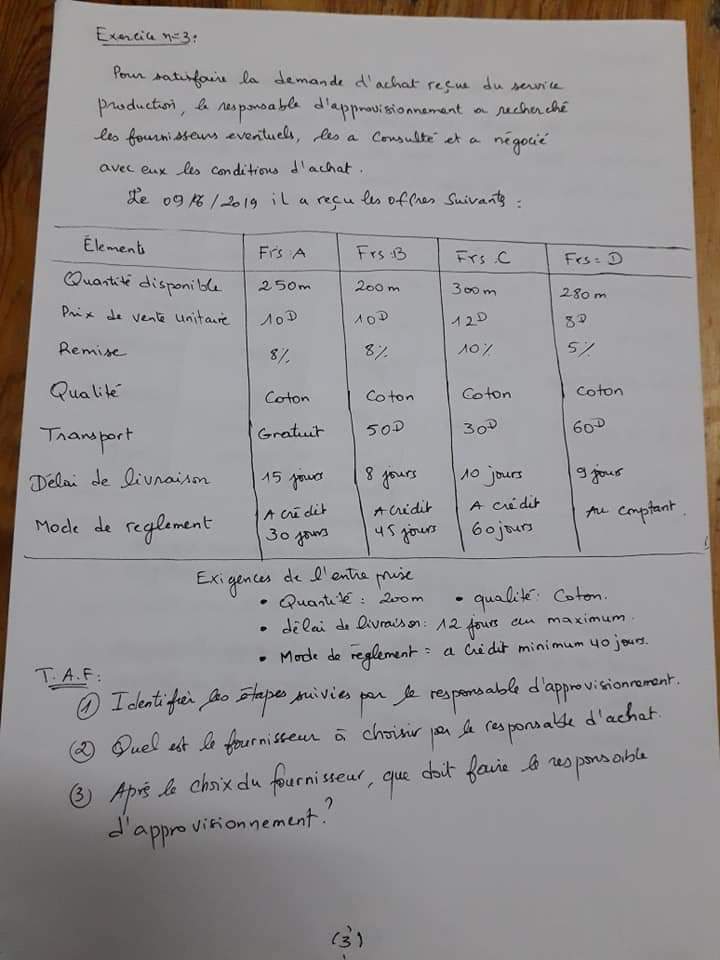 Exercice n=3:
Pour satisfaire la demande d'achat reçue du service
production, le responsable d'approvisionnement a recherché
les fournisseurs eventuels, les a consulté et a négocié
avec eux les conditions d'achat.
Le 2019 il a reçu les offres suivants:
Élements Frs:A Frs:B Frs:C Frs=D
Quantité disponible 250m 200m 300m 280m
Prix de vente unitaire 10D 10D 12D 8D
Remise 8% 8% 10% 5%
Qualité Coton Coton Coton Coton
Transport Gratuit 50D 30D 60D
Délai de livraison 15 jours 8 jours 10 jours 9 jours
Mode de reglement A crédit A crédit A crédit Au comptant.
30 jours 45 jours 60 jours
Exigences de l'entreprise
• Quantité: 200m • qualité: Coton.
• délai de livraison: 12 jours au maximum.
• Mode de règlement = a crédit minimum 40 jours.
T.A.F:
① Identifier les étapes suivies par le responsable d'approvisionnement.
② Quel est le fournisseur à choisir par le responsable d'achat.
③ Après le choix du fournisseur, que doit faire le responsable
d'approvisionnement?
(3)